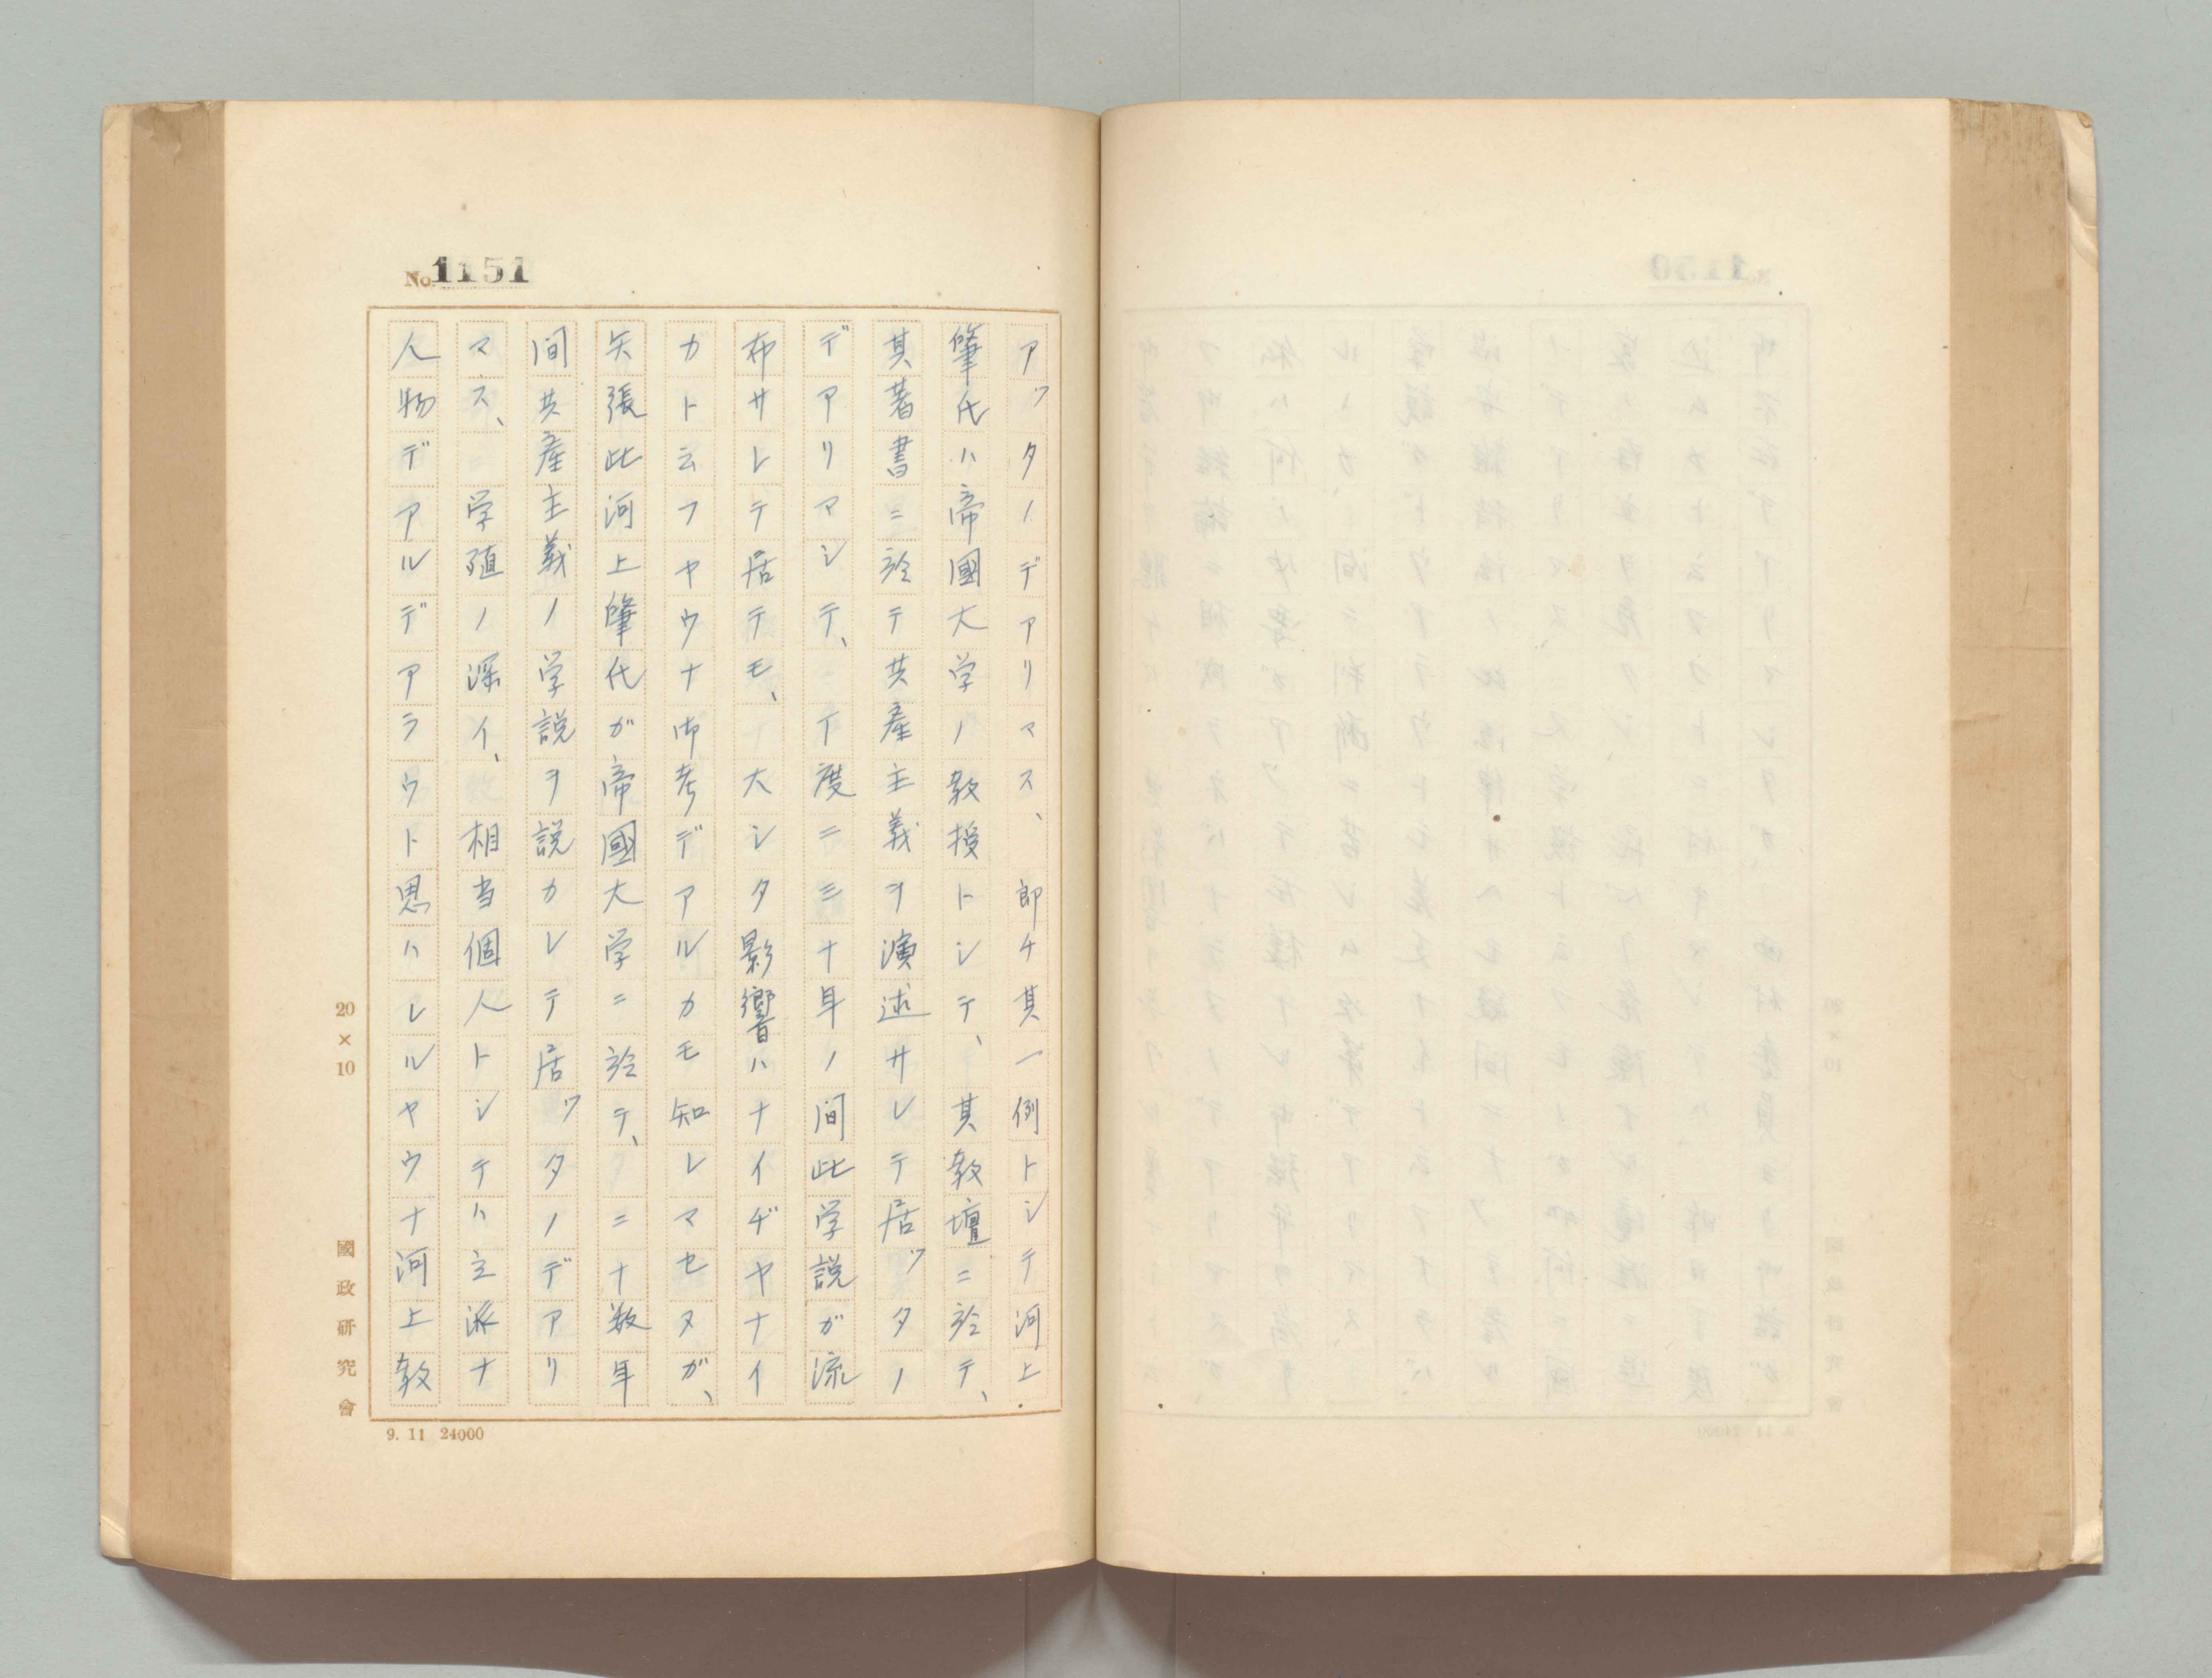 No. 1151
アツタノデアリマス、郎チ其一例トシテ河上
肇氏ハ帝國大学ノ教授トシテ、其教壇ニ於テ、
其著書ニ於テ共産主義ヲ演述サレテ居ツタノ
デアリマシテ、丁度二三十年ノ間此学説ガ流
布サレテ居テモ、大シタ影響ハナイヂヤナイ
カト云フヤウナ御考デアルカモ知レマセヌガ、
矢張此河上肇氏ガ帝國大学ニ於テ、二十数年
間共産主義ノ学説ヲ説カレテ居ツタノデアリ
マス、学殖ノ深イ、相当個人トシテハ立派ナ
人物デアルデアラウト思ハレルヤウナ河上教
20×10
國政研究會
9. 11 24000